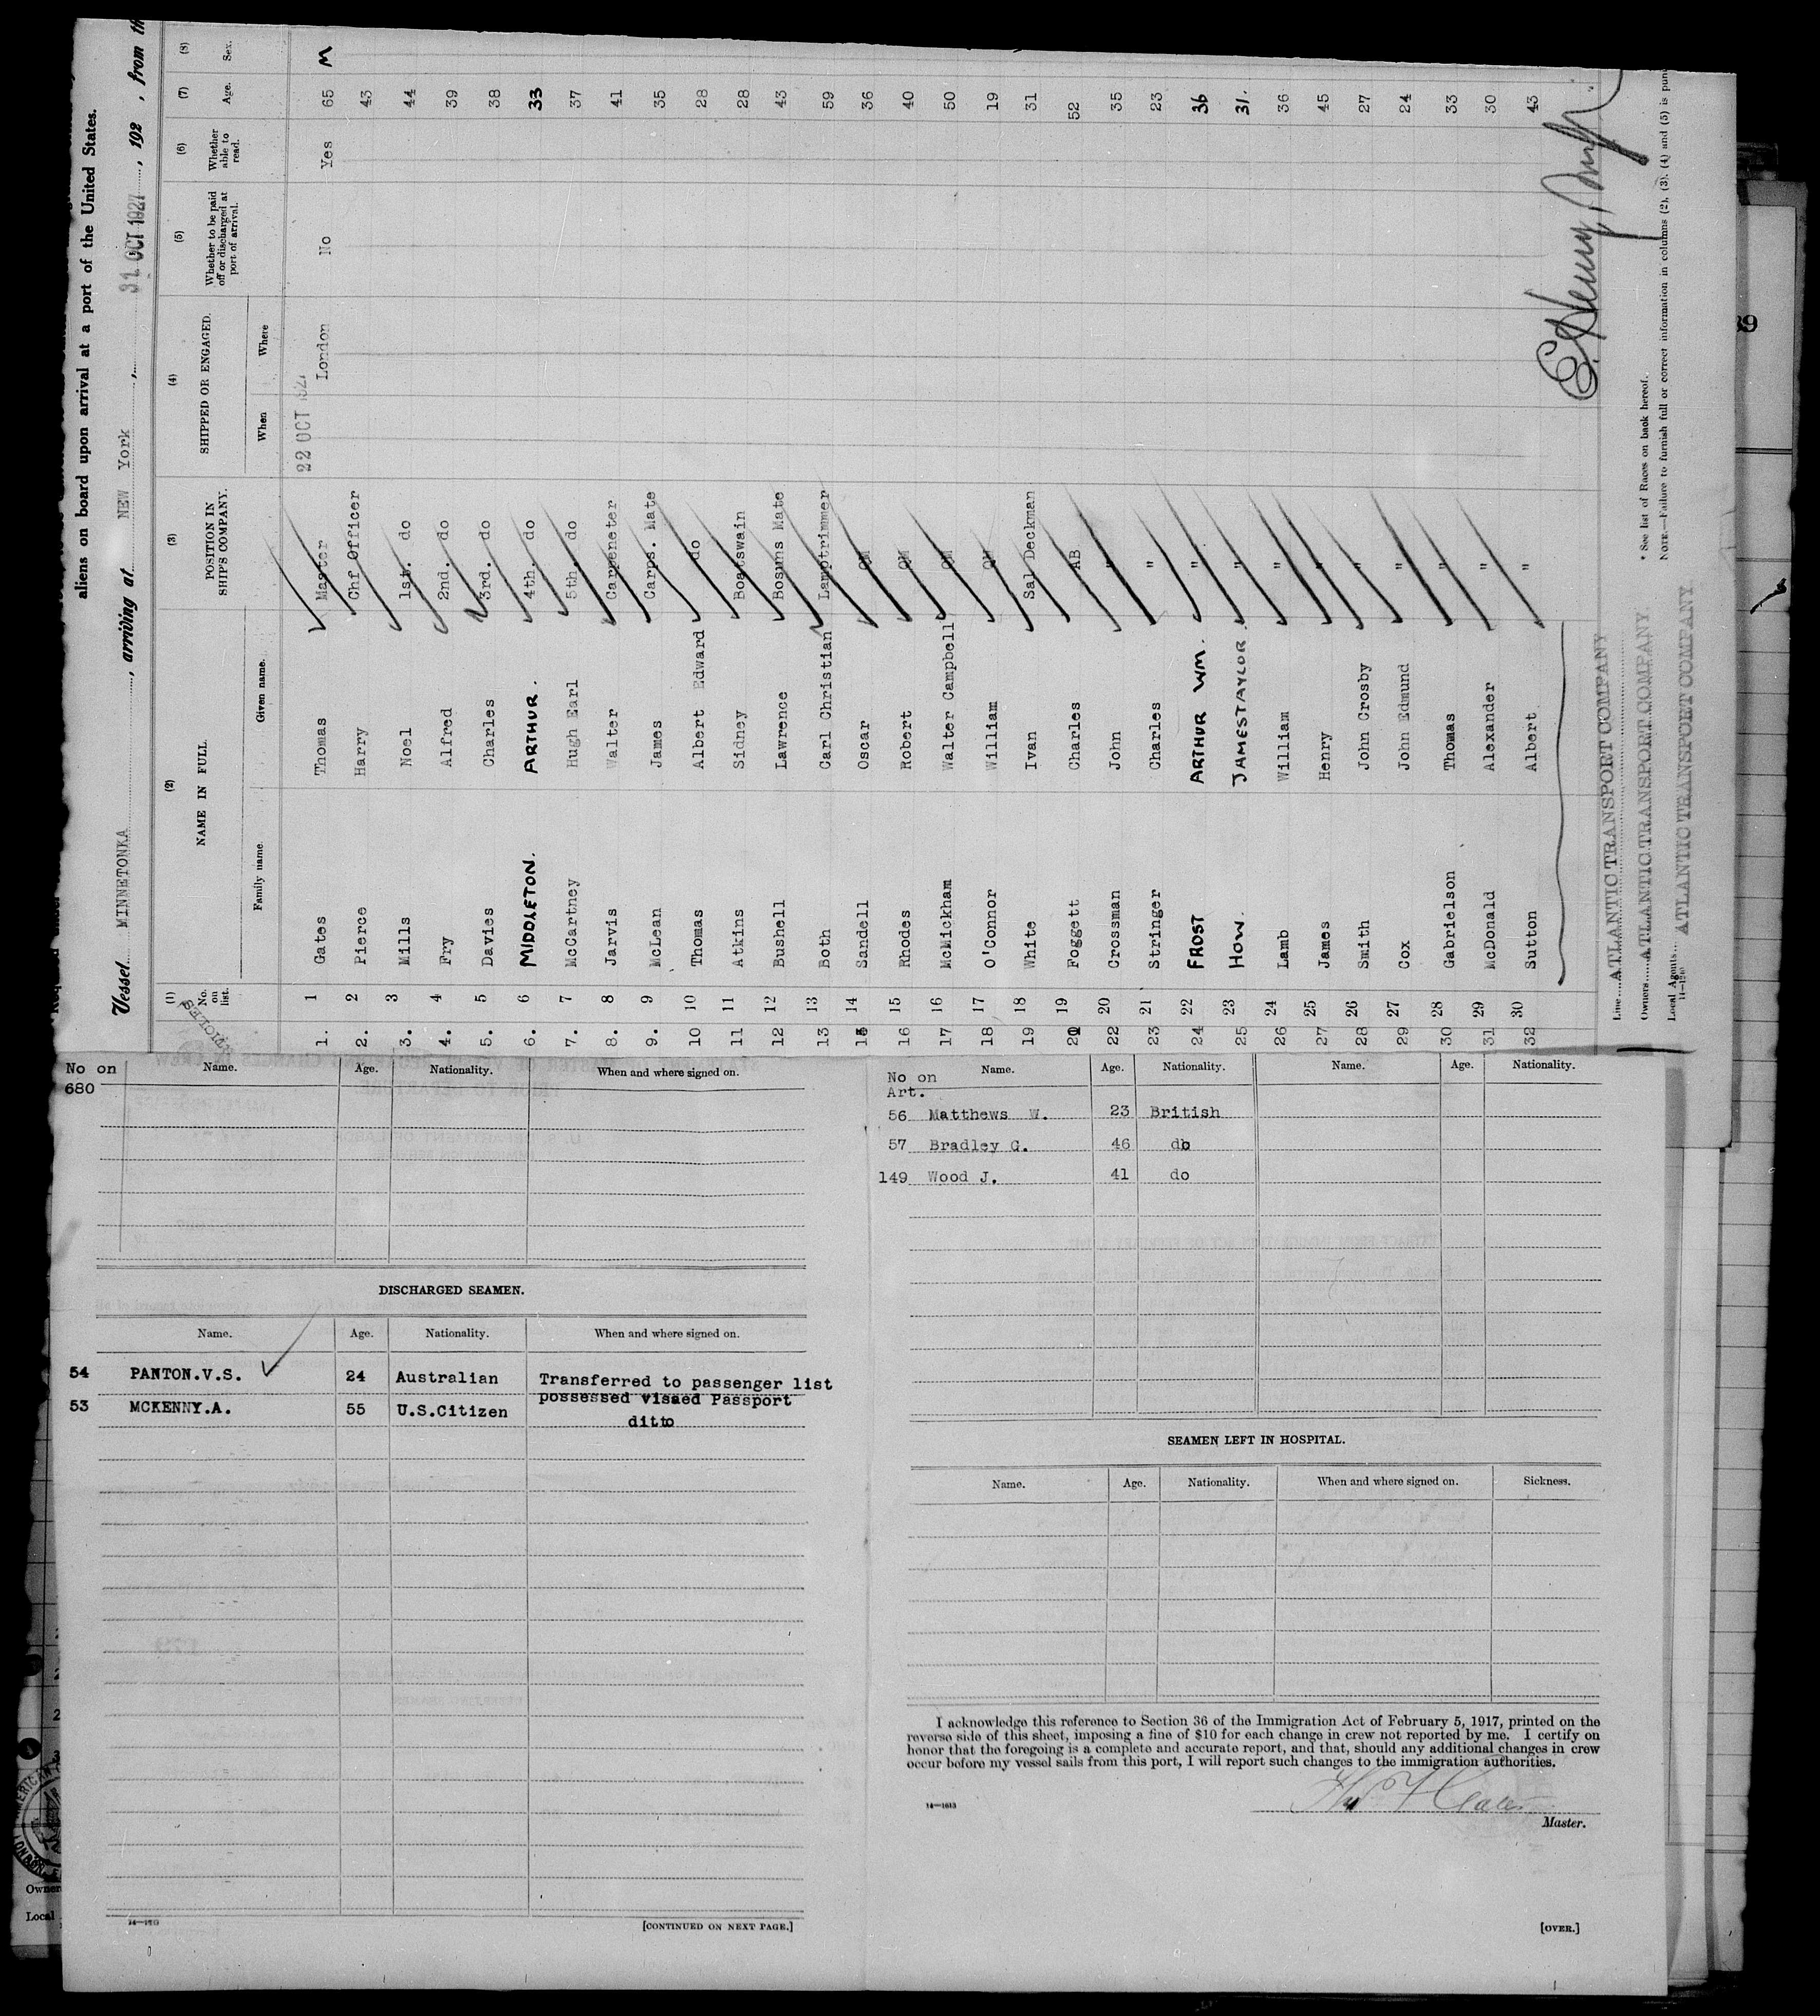 aliens on board upon arrival at a port of the United States.
Vessel MINNETONKA, arriving at NEW York, 31 OCT 1927, 192 , from th
(1) (2) (3) (4) (5) (6) (7) (8)
No. on list. NAME IN FULL. POSITION IN SHIP'S COMPANY. SHIPPED OR ENGAGED. Whether to be paid off or discharged at port of arrival. Whether able to read. Age. Sex.
Family name. Given name. When Where
22 OCT 1927
1. 1 Gates Thomas Master London No Yes 65 M
2. 2 Pierce Harry Chf Officer 43
3. 3 Mills Noel 1st. do 44
4. 4 Fry Alfred 2nd. do 39
5. 5 Davies Charles 3rd. do 38
6. 6 MIDDLETON. ARTHUR. 4th. do 33
7. 7 McCartney Hugh Earl 5th. do 37
8. 8 Jarvis Walter Carpeneter 41
9. 9 McLean James Carps. Mate 35
10 10 Thomas Albert Edward do 28
11 11 Atkins Sidney Boatswain 28
12 12 Bushell Lawrence Bosuns Mate 43
13 13 Both Carl Christian Lamptrimmer 59
15 14 Sandell Oscar QM 36
16 15 Rhodes Robert QM 40
17 16 McMickham Walter Campbell QM 50
18 17 O'Connor William QM 19
19 18 White Ivan Sal Deckman 31
20 19 Foggett Charles AB 52
22 20 Crossman John " 35
23 21 Stringer Charles " 23
24 22 FROST ARTHUR WM. " 36
25 23 HOW. JAMES TAYLOR. " 31.
26 24 Lamb William " 36
27 25 James Henry " 45
28 26 Smith John Crosby " 27
29 27 Cox John Edmund " 24
30 28 Gabrielson Thomas " 33
31 29 McDonald Alexander " 30
32 30 Sutton Albert " 43
Line ATLANTIC TRANSPORT COMPANY
Owners ATLANTIC TRANSPORT COMPANY
Local Agents ATLANTIC TRANSPORT COMPANY
* See list of Races on back hereof.
NOTE.—Failure to furnish full or correct information in columns (2), (3), (4) and (5) is puni
No on Name. Age. Nationality. When and where signed on.
680
DISCHARGED SEAMEN.
Name. Age. Nationality. When and where signed on.
54 PANTON.V.S. 24 Australian Transferred to passenger list
possessed visaed Passport
53 MCKENNY.A. 55 U.S.Citizen ditto
14—1613
[CONTINUED ON NEXT PAGE.]
No on Art. Name. Age. Nationality. Name. Age. Nationality.
56 Matthews W. 23 British
57 Bradley G. 46 do
149 Wood J. 41 do
SEAMEN LEFT IN HOSPITAL.
Name. Age. Nationality. When and where signed on. Sickness.
I acknowledge this reference to Section 36 of the Immigration Act of February 5, 1917, printed on the
reverse side of this sheet, imposing a fine of $10 for each change in crew not reported by me. I certify on
honor that the foregoing is a complete and accurate report, and that, should any additional changes in crew
occur before my vessel sails from this port, I will report such changes to the immigration authorities.
Gates
14—1613
Master.
[OVER.]
Owner
Local
39
AMERICAN
LONDON